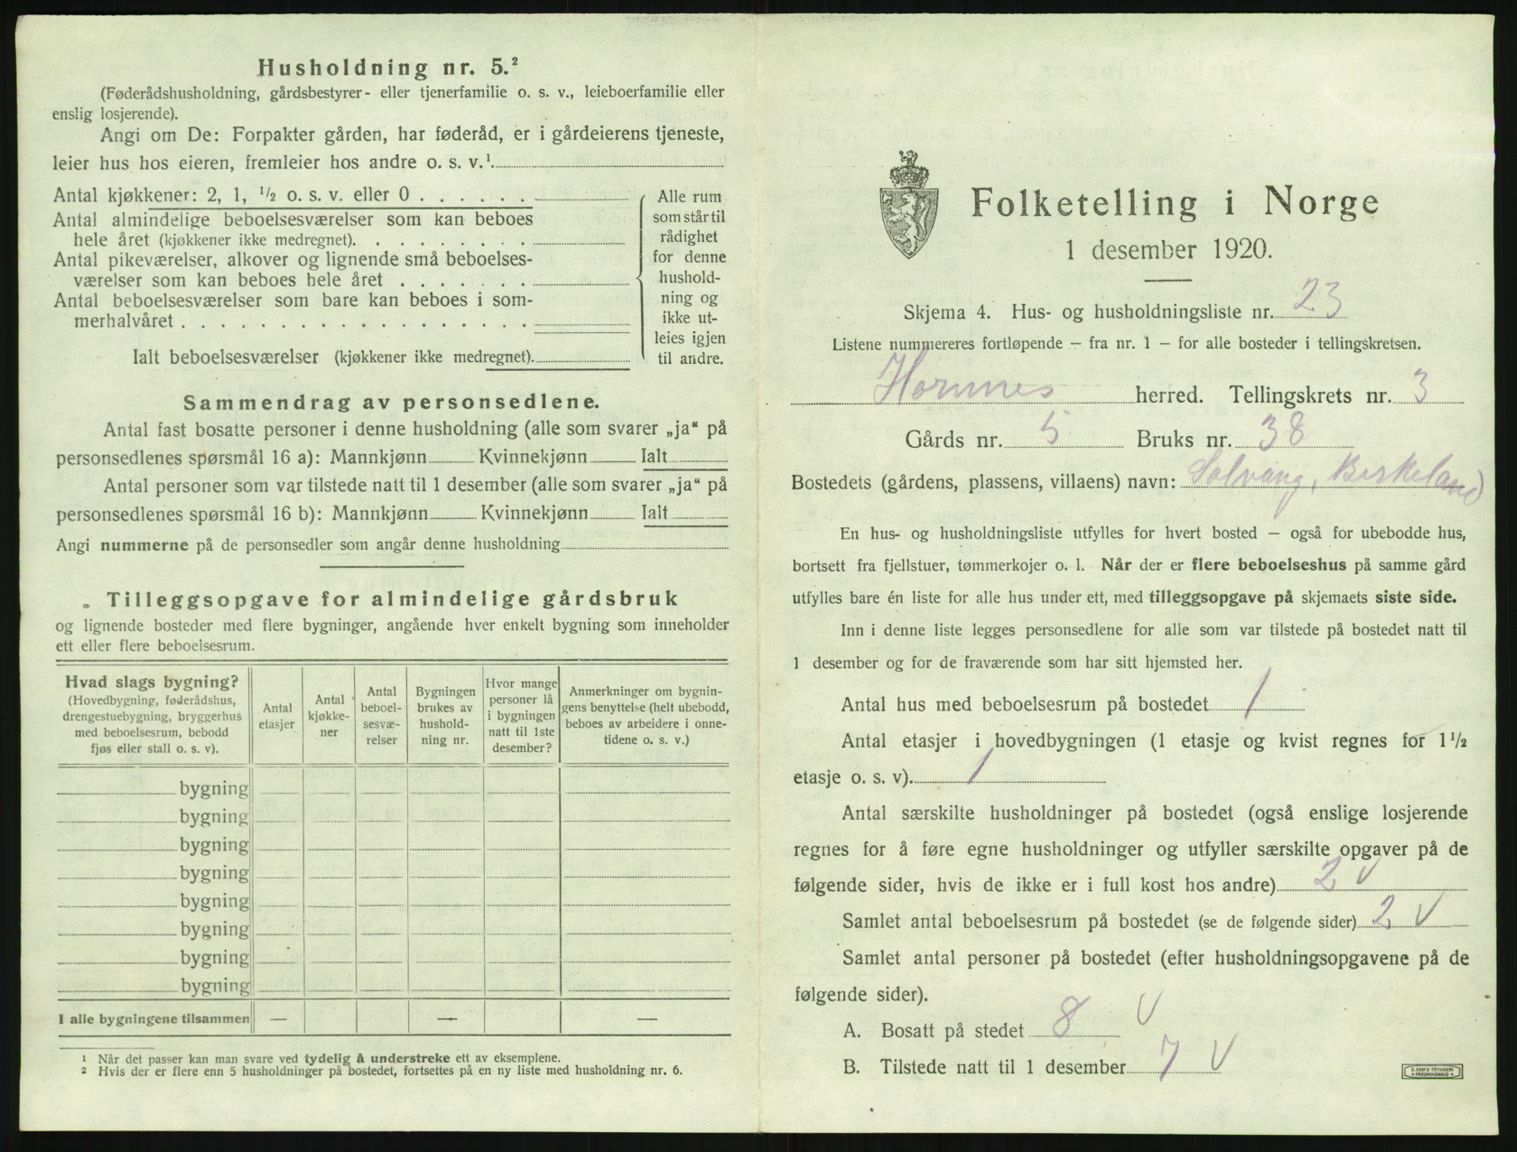 Husholdning nr. 5.²
(Føderådshusholdning, gårdsbestyrer- eller tjenerfamilie o. s. v., leieboerfamilie eller
enslig losjerende).
Angi om De: Forpakter gården, har føderåd, er i gårdeierens tjeneste,
leier hus hos eieren, fremleier hos andre o. s. v.¹
Antal kjøkkener: 2, 1, ½ o. s. v. eller 0 . . . . . .
Antal almindelige beboelsesværelser som kan beboes
hele året (kjøkkener ikke medregnet). . . . . . . . .
Antal pikeværelser, alkover og lignende små beboelses-
værelser som kan beboes hele året . . . . . . .
Antal beboelsesværelser som bare kan beboes i som-
merhalvåret . . . . . . . . . . . . . . . . . .
Ialt beboelsesværelser (kjøkkener ikke medregnet).
Alle rum
som står til
rådighet
for denne
hushold-
ning og
ikke ut-
leies igjen
til andre.
Sammendrag av personsedlene.
Antal fast bosatte personer i denne husholdning (alle som svarer „ja“ på
personsedlenes spørsmål 16 a): Mannkjønn Kvinnekjønn Ialt
Antal personer som var tilstede natt til 1 desember (alle som svarer „ja“ på
personsedlenes spørsmål 16 b): Mannkjønn Kvinnekjønn Ialt
Angi nummerne på de personsedler som angår denne husholdning
Tilleggsopgave for almindelige gårdsbruk
og lignende bosteder med flere bygninger, angående hver enkelt bygning som inneholder
ett eller flere beboelsesrum.
Hvad slags bygning?
(Hovedbygning, føderådshus,
drengestuebygning, bryggerhus
med beboelsesrum, bebodd
fjøs eller stall o. s. v).
Antal
etasjer
Antal
kjøkke-
ner
Antal
beboel-
sesvæ-
relser
Bygningen
brukes av
hushold-
ning nr.
Hvor mange
personer lå
i bygningen
natt til 1ste
desember?
Anmerkninger om bygnin-
gens benyttelse (helt ubebodd,
beboes av arbeidere i onne-
tidene o. s. v.)
bygning
bygning
bygning
bygning
bygning
bygning
bygning
bygning
I alle bygningene tilsammen — — —
¹ Når det passer kan man svare ved tydelig å understreke ett av eksemplene.
² Hvis der er flere enn 5 husholdninger på bostedet, fortsettes på en ny liste med husholdning nr. 6.
Folketelling i Norge
1 desember 1920.
Skjema 4. Hus- og husholdningsliste nr. 23
Listene nummereres fortløpende — fra nr. 1 — for alle bosteder i tellingskretsen.
Hornnes herred. Tellingskrets nr. 3
Gårds nr. 5 Bruks nr. 38
Bostedets (gårdens, plassens, villaens) navn: Solvang, Birkeland
En hus- og husholdningsliste utfylles for hvert bosted — også for ubebodde hus,
bortsett fra fjellstuer, tømmerkojer o. l. Når der er flere beboelseshus på samme gård
utfylles bare én liste for alle hus under ett, med tilleggsopgave på skjemaets siste side.
Inn i denne liste legges personsedlene for alle som var tilstede på bostedet natt til
1 desember og for de fraværende som har sitt hjemsted her.
Antal hus med beboelsesrum på bostedet 1
Antal etasjer i hovedbygningen (1 etasje og kvist regnes for 1½
etasje o. s. v). 1
Antal særskilte husholdninger på bostedet (også enslige losjerende
regnes for å føre egne husholdninger og utfyller særskilte opgaver på de
følgende sider, hvis de ikke er i full kost hos andre) 2 V
Samlet antal beboelsesrum på bostedet (se de følgende sider) 2 V
Samlet antal personer på bostedet (efter husholdningsopgavene på de
følgende sider).
A. Bosatt på stedet 8 V
B. Tilstede natt til 1 desember 7 V